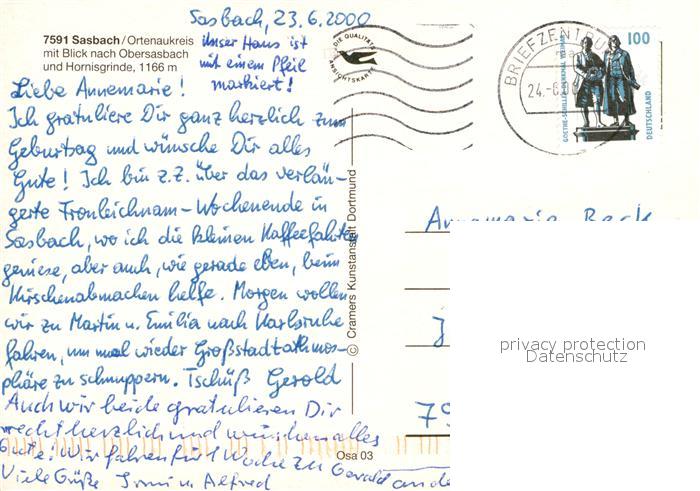 Sasbach, 23.6.2000
7591 Sasbach/Ortenaukreis
mit Blick nach Obersasbach
und Hornisgrinde, 1166 m
Unser Haus ist
mit einem Pfeil
markiert!
Liebe Annemarie!
Ich gratuliere Dir ganz herzlich zum
Geburtag und wünsche Dir alles
Gute! Ich bin z.Z. über das verlän-
gerte Fronleichnam-Wochenende in
Sasbach, wo ich die kleinen Kaffeefahrten
geniese, aber auch, wie gerade eben, beim
Kirschenabmachen helfe. Morgen wollen
wir zu Martin u. Emilia nach Karlsruhe
fahren, um mal wieder Großstadtathmos-
phäre zu schnuppern. Tschüß Gerold
Auch wir beide gratulieren Dir
recht herzlich und wünschen alles
Gute! Wir fahren für 1 Woche zu Gerold an de
Viele Grüße Irmi u. Alfred
DIE QUALITÄTS
ANSICHTSKARTE
© Cramers Kunstanstalt Dortmund
Osa 03
BRIEFZENTRUM
24.-6.00
100
GOETHE-SCHILLER-DENKMAL WEIMAR
DEUTSCHLAND
Annemarie Beck
J
79
privacy protection
Datenschutz